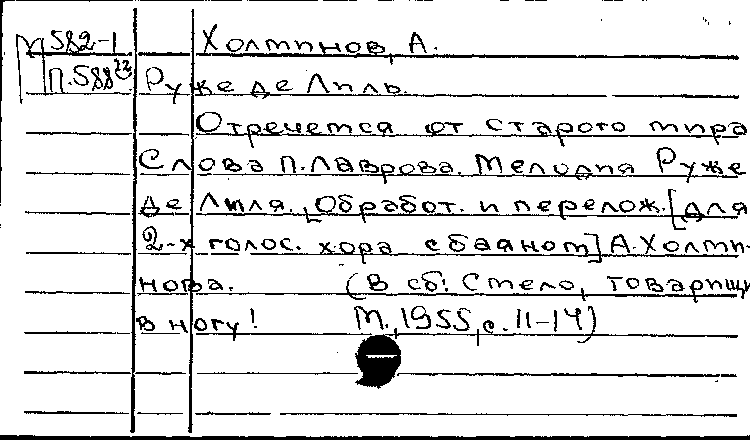 М 582-1 Холминов, А.
П.588²² Руже де Лиль.
Отречемся от старого мира
Слова П.Лаврова. Мелодия Руже
де Лиля. [Обработ. и перелож. [для
2-х голос. хора с баяном] А.Холми-
нова. (В сб: Смело, товарищи
в ногу! М.,1955,с.11-14)